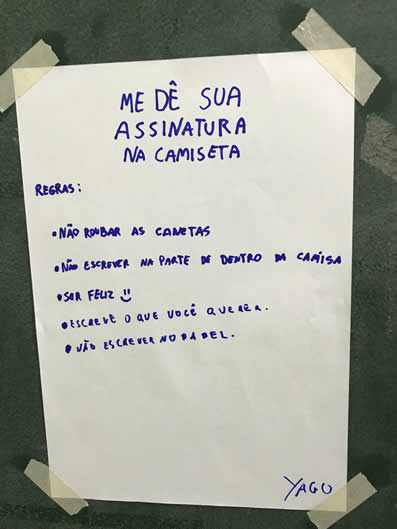 ME DÊ SUA
ASSINATURA
NA CAMISETA
REGRAS:
•NÃO ROUBAR AS CANETAS
•NÃO ESCREVER NA PARTE DE DENTRO DA CAMISA
•SER FELIZ :)
•ESCREVE O QUE VOCÊ QUERER.
•NÃO ESCREVER NO PAPEL.
YAGO